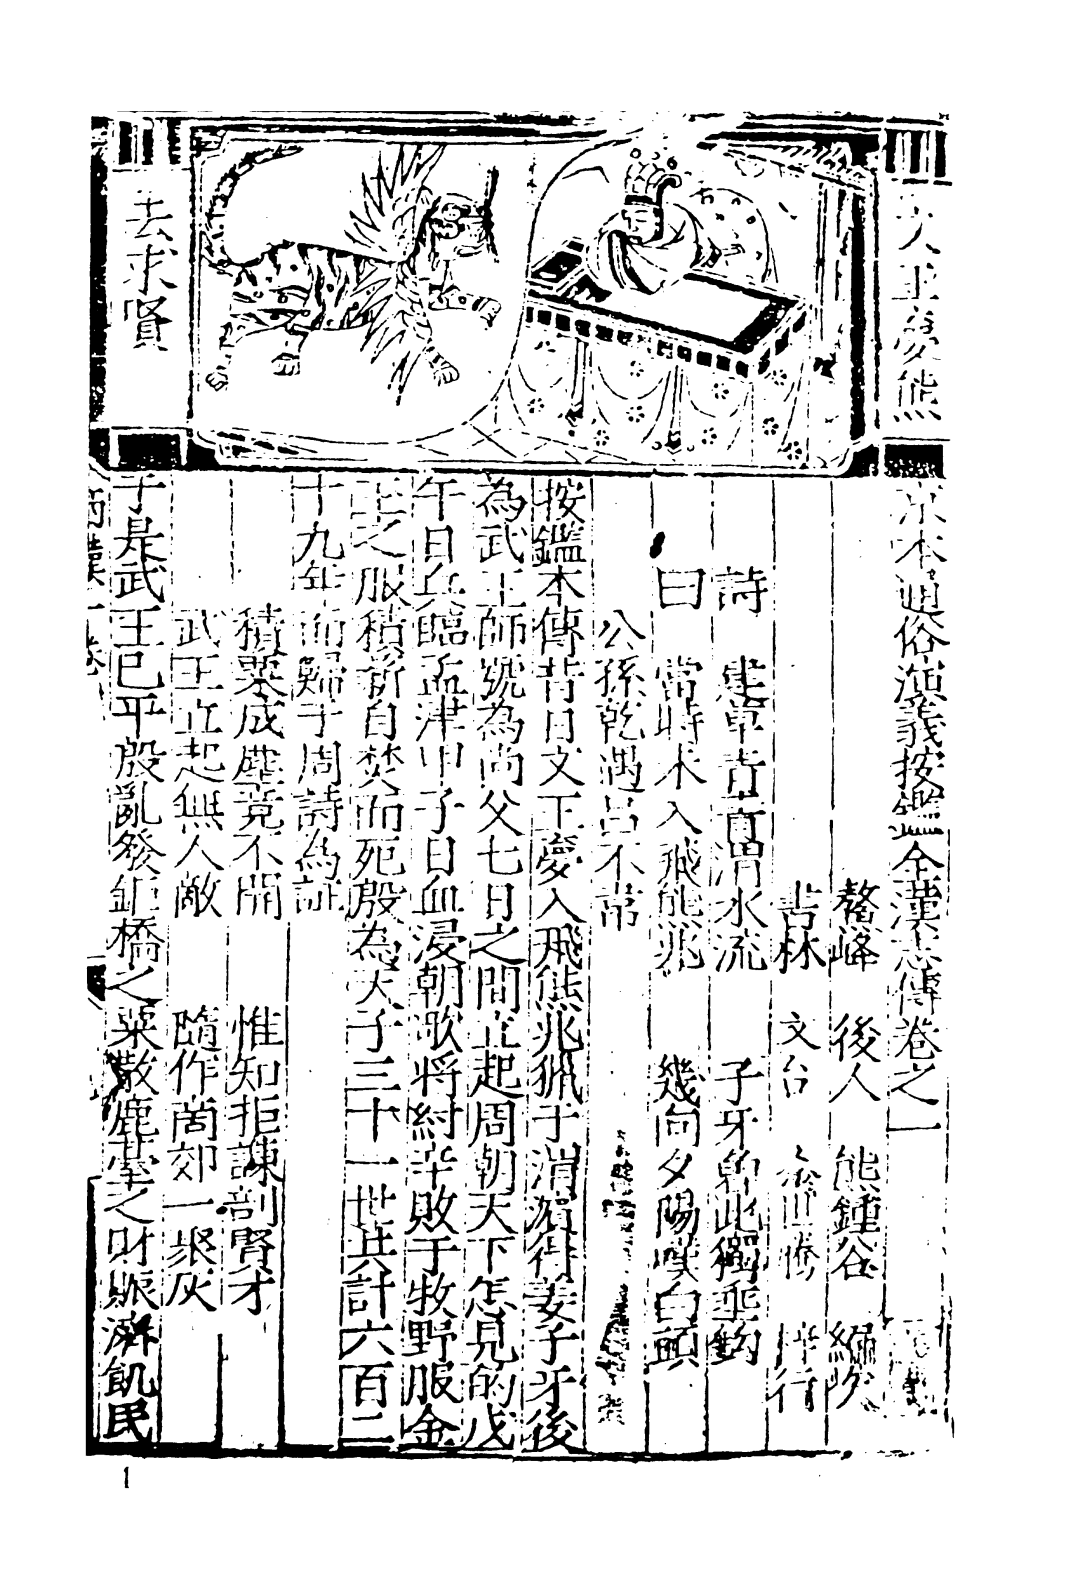 文王夢熊
去求賢
京本通俗演義按鑑全漢志傳卷之一
鰲峰　後人　熊鍾谷　編次
書林　文台　余世騰　梓行
詩　建單青直渭水流　子牙魯此獨垂鈎
曰　當時未入飛熊兆　幾向夕陽嘆白頭
公孫乾遇呂不韋
按鑑本傳昔日文王夢入飛熊兆獵于渭濱得姜子牙後
為武王師號為尚父七日之間立起周朝天下怎見的戊
午日兵臨孟津甲子日血浸朝歌將紂辛敗于牧野服金
玉之服積薪自焚而死殷為天子三十一世共計六百二
十九年而歸于周詩為証
積粟成塵竟不開　惟知拒諫剖賢才
武王立起無人敵　隨作商郊一聚灰
于是武王已平殷亂發鉅橋之粟散鹿臺之財賑濟飢民
兩漢一卷
1